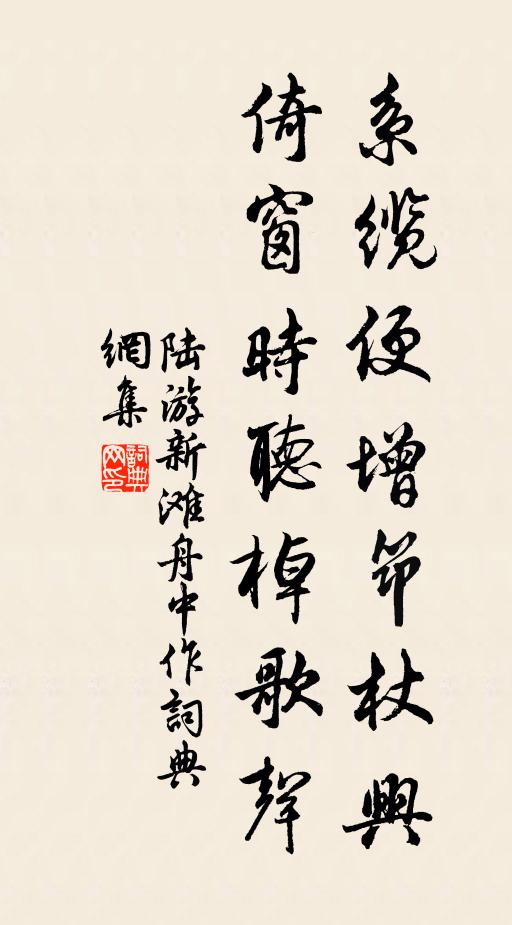 系缆便增筇杖興
倚窗時聽棹歌聲
陆游新滩舟中作詞典
網集
詞典
网印